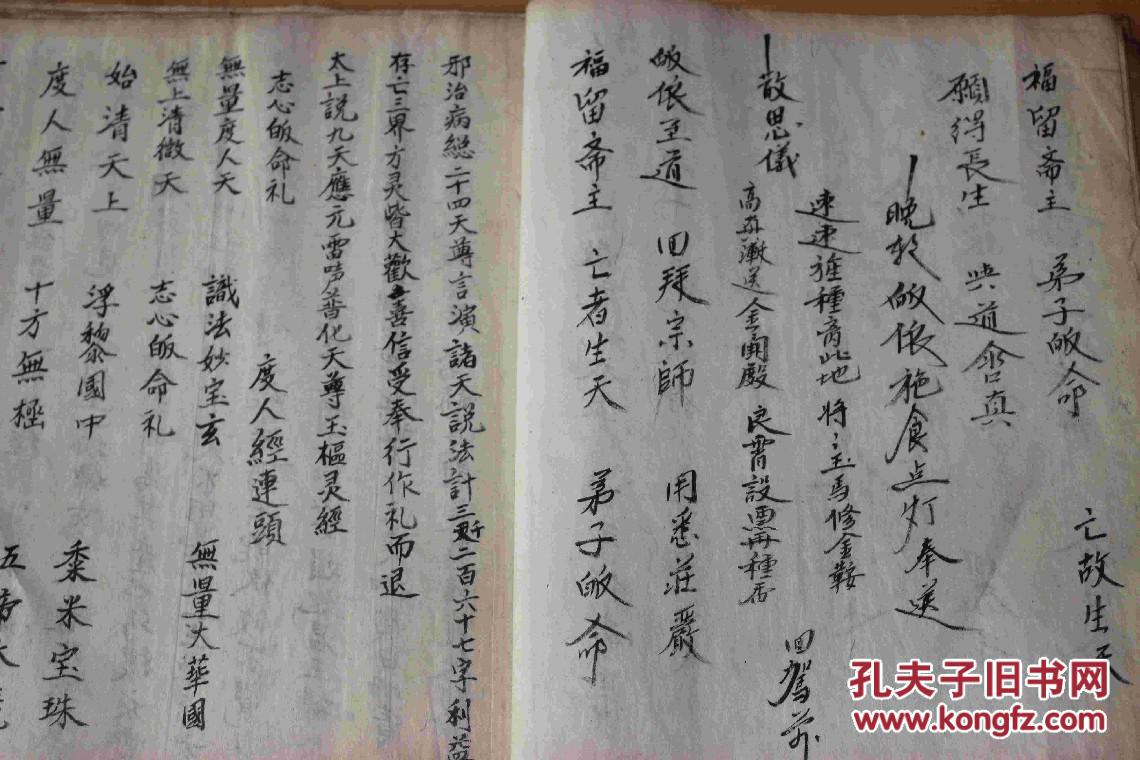 福留斋主 弟子皈命 亡故生天
願得長生 共道合真
晚朝皈依施食点灯奉送
速速 種离此地 将 玉馬修金鞍 回駕前
散思儀
高 漸送金 殿 良宵設 種香
皈依至道 回拜宗師 用悉莊嚴
福留斋主 亡者生天 弟子皈命
邪治病総二十四天尊言演諸天説法計三 二百六十七字利益
存亡三界方灵皆大歡喜信受奉行作礼而退
太上説九天應元雷声普化天尊玉樞灵經
度人經連頭
志心皈命礼
無量度人天 識法妙宝玄 無量大華國
無上清微天 志心皈命礼
始清天上 浮黎國中 黍米宝珠
度人無量 十方無極 五帝大
孔夫子旧书网
www.kongfz.com